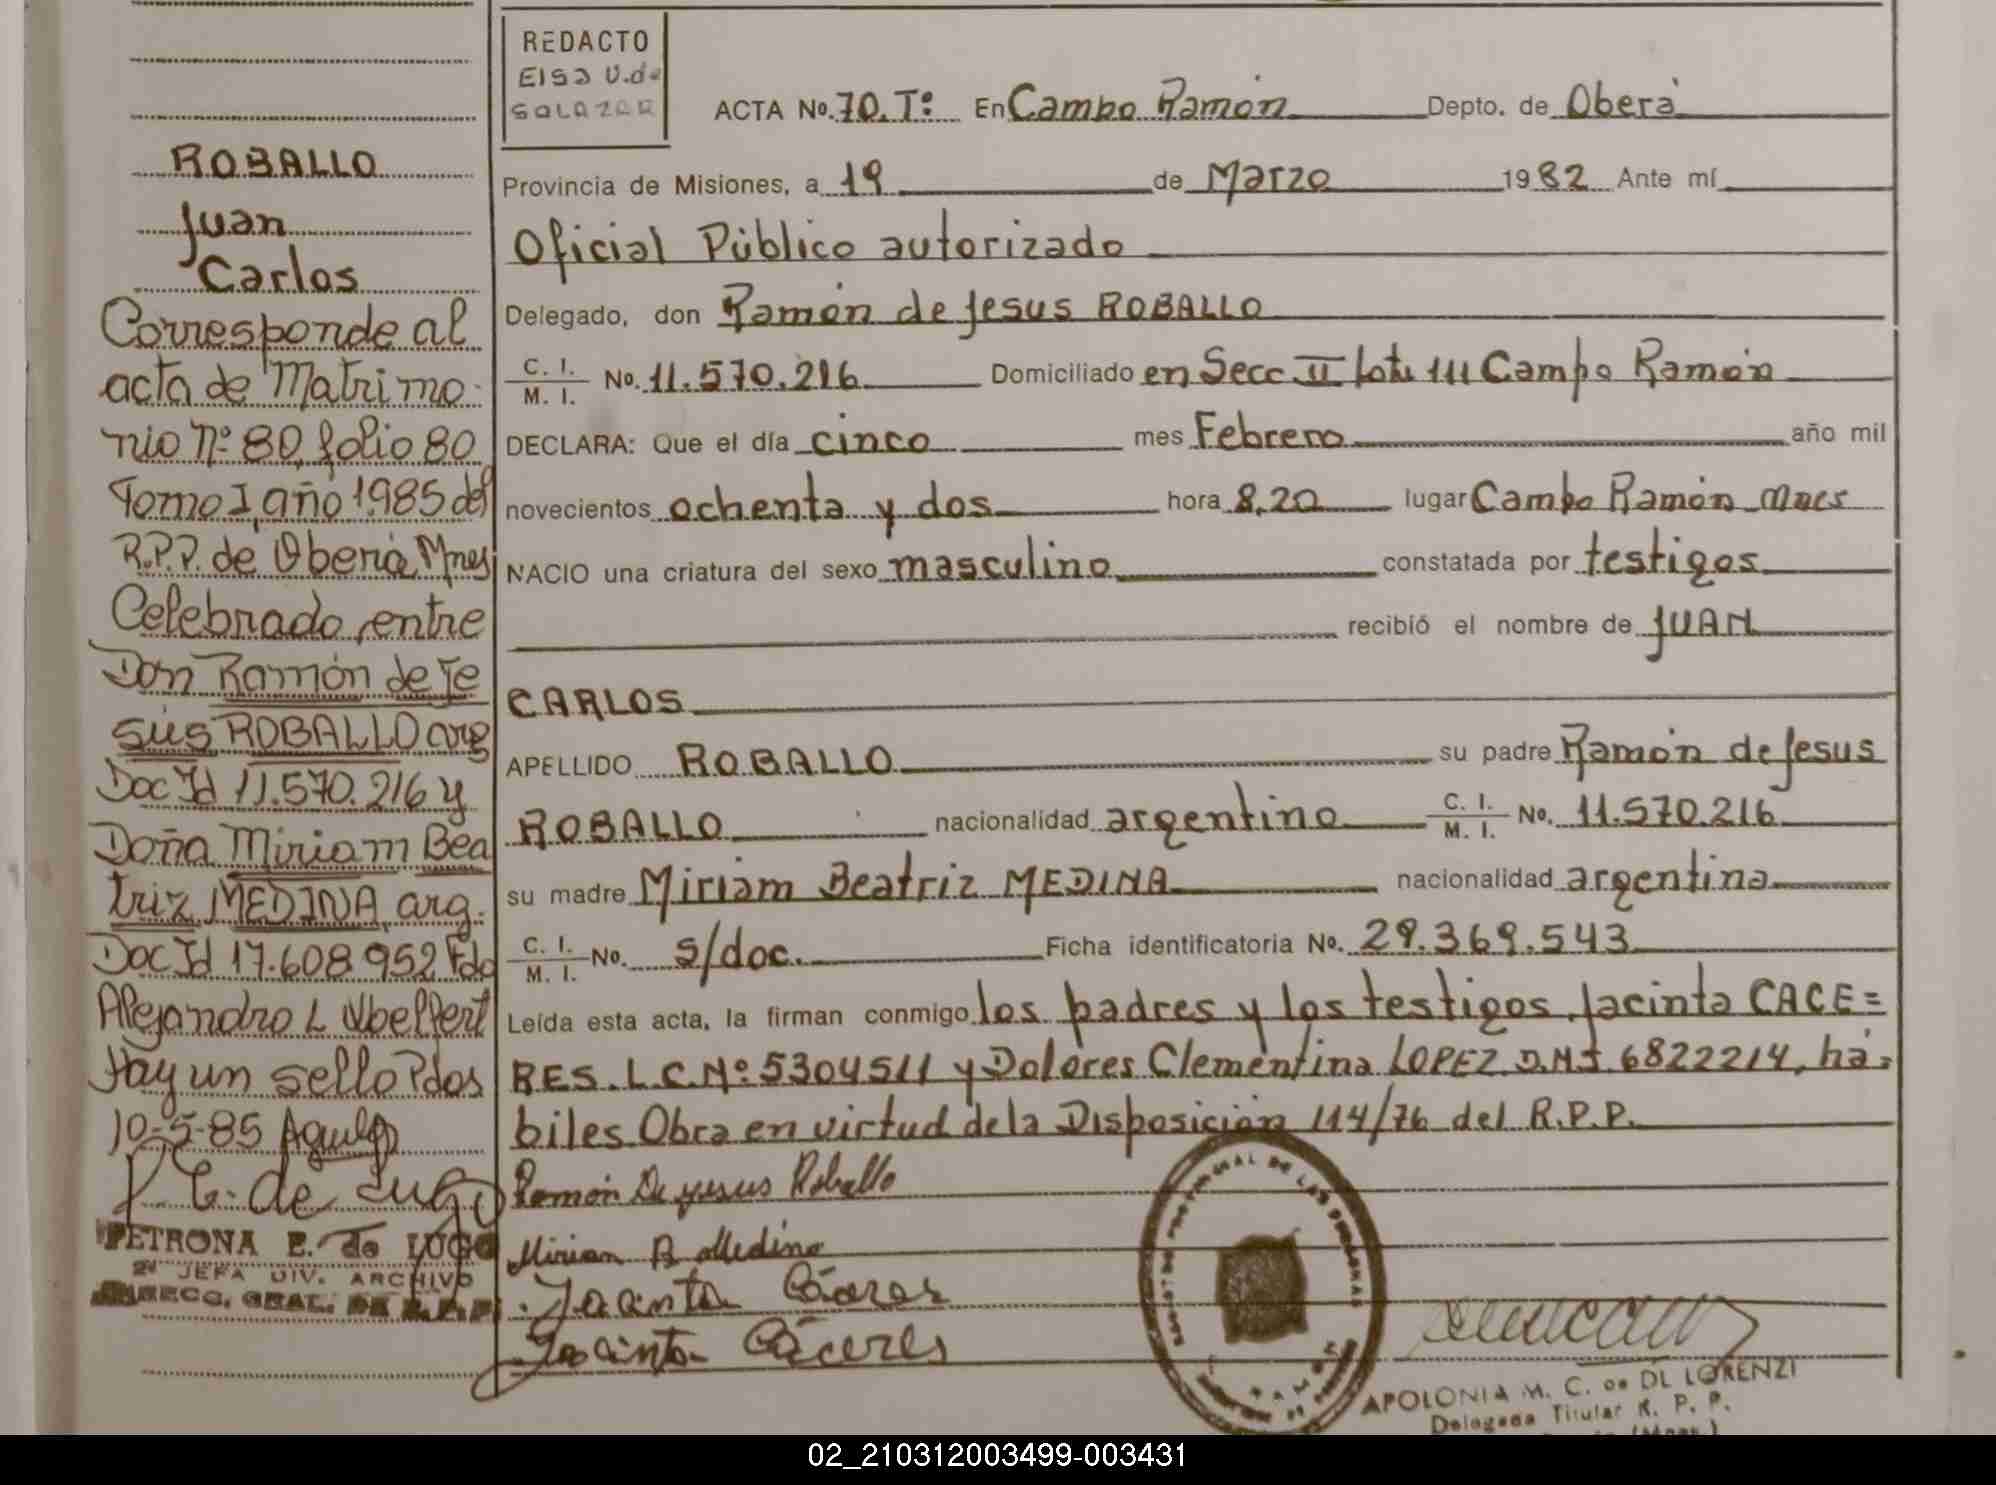 ROBALLO
Juan
Carlos
Corresponde al
acta de Matrimo-
nio Nº 80, folio 80
Tomo I, año 1985 del
R.P.P. de Oberá Mnes
Celebrado, entre
Don Ramón de Je
sús ROBALLO arg
Doc Id 11.570.216 y
Doña Miriam Bea
triz MEDINA, arg.
Doc Id 17.608.952 Fdo
Alejandro L
Hay un sello Pdos
10-5-85
E. de Lugo
PETRONA E. de LUGO
2ª JEFA DIV. ARCHIVO
DIRECC. GRAL. DE R.P.P.
REDACTO
Elsa V. de
SALAZAR
ACTA No. 70. Tº: En Campo Ramón Depto. de Oberá
Provincia de Misiones, a 19 de Marzo 1982 Ante mí
Oficial Público autorizado
Delegado, don Ramón de Jesus ROBALLO
C. I. / M. I. No. 11.570.216 Domiciliado en Secc II lote 111 Campo Ramón
DECLARA: Que el día cinco mes Febrero año mil
novecientos ochenta y dos hora 8,20 lugar Campo Ramón Mnes
NACIO una criatura del sexo masculino constatada por testigos
recibió el nombre de JUAN
CARLOS
APELLIDO ROBALLO su padre Ramón de Jesus
ROBALLO nacionalidad argentino C. I. / M. I. No. 11.570.216
su madre Miriam Beatriz MEDINA nacionalidad argentina
C. I. / M. I. No. s/doc. Ficha identificatoria No. 29.369.543
Leída esta acta, la firman conmigo los padres y los testigos, Jacinta CACE=
RES. L.C.Nº 5304511 y Dolores Clementina LOPEZ D.N.I. 6822214, há-
biles. Obra en virtud de la Disposición 114/76 del R.P.P.
Ramón De yesus Roballo
Mirian B Medina
Jacinta Cáceres
Jacinta Cáceres
REGISTRO PROVINCIAL DE LAS PERSONAS
APOLONIA M. C. de DL LORENZI
Delegada Titular R. P. P.
(Mnes.)
02_210312003499-003431